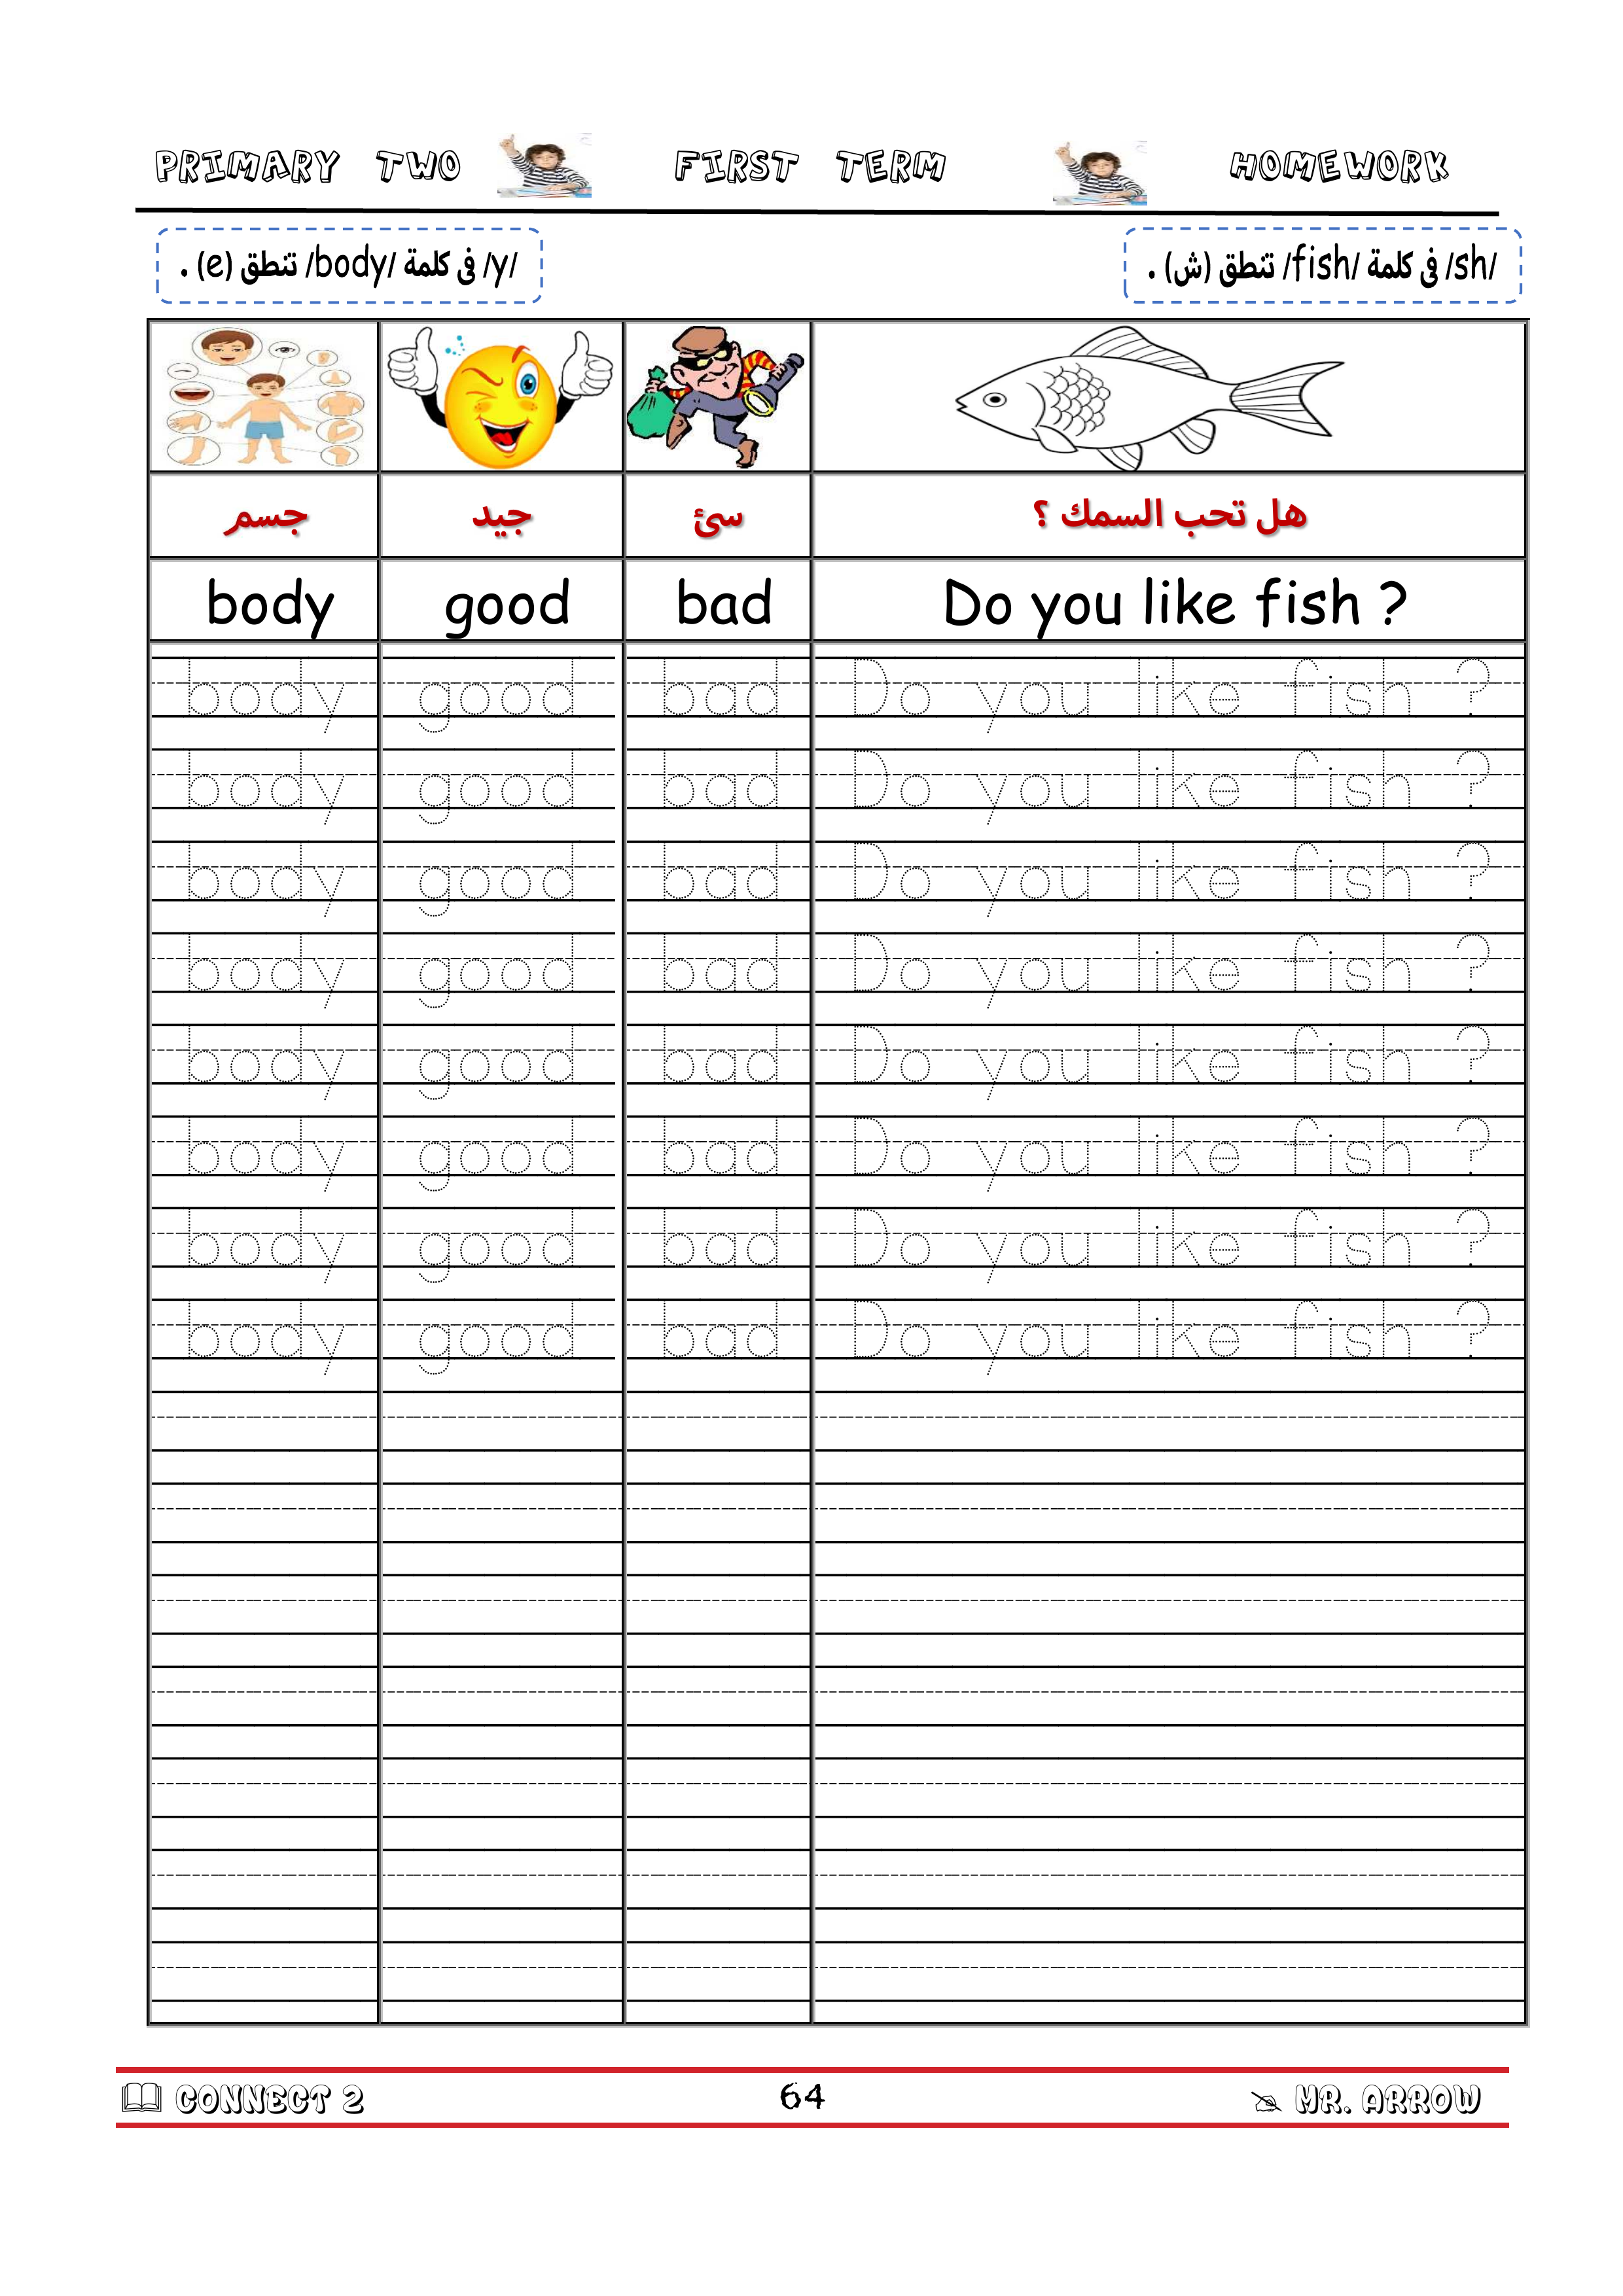 PRIMARY TWO FIRST TERM HOMEWORK
/y/ فى كلمة /body/ تنطق (e) .
/sh/ فى كلمة /fish/ تنطق (ش) .
جسم جيد سئ هل تحب السمك ؟
body good bad Do you like fish ?
body good bad Do you like fish ?
body good bad Do you like fish ?
body good bad Do you like fish ?
body good bad Do you like fish ?
body good bad Do you like fish ?
body good bad Do you like fish ?
body good bad Do you like fish ?
body good bad Do you like fish ?
CONNECT 2 64 MR. ARROW